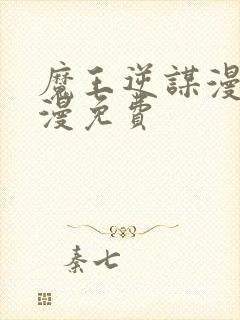 魔王逆謀漫
漫免費
秦七